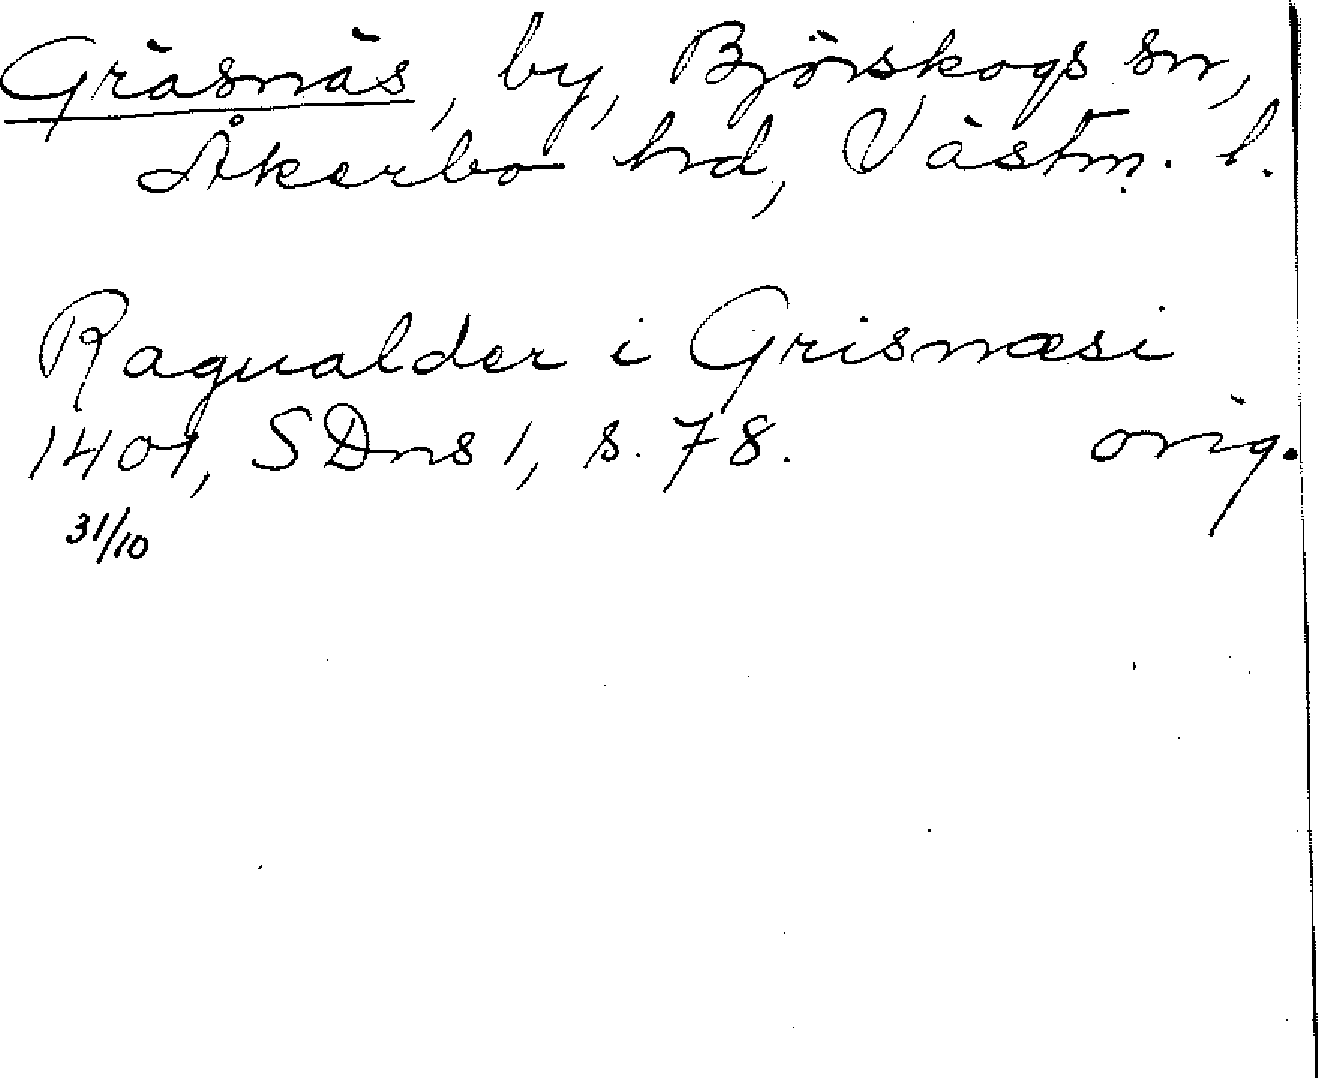 Gräsnäs, by, Björskogs sn,
Åkerbo hd, Västm. l.
Ragualder i Grisnæsi
1401, SDns 1, s. 78. orig.
31/10